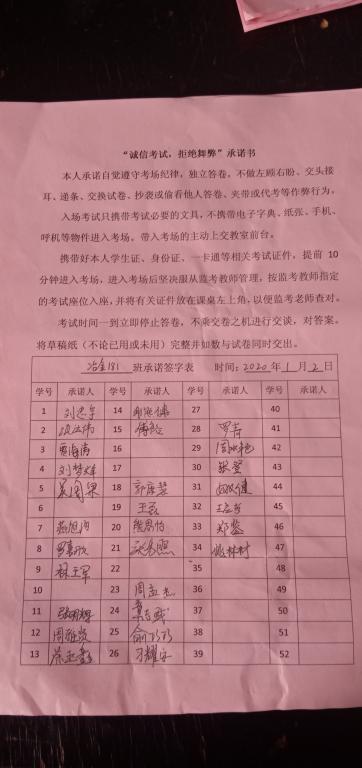 “诚信考试，拒绝舞弊”承诺书
本人承诺自觉遵守考场纪律，独立答卷。不做左顾右盼、交头接
耳、递条、交换试卷、抄袭或偷看他人答卷、夹带或代考等作弊行为。
入场考试只携带考试必要的文具，不携带电子字典、纸张、手机、
呼机等物件进入考场。带入考场的主动上交教室前台。
携带好本人学生证、身份证、一卡通等相关考试证件，提前 10
分钟进入考场，进入考场后坚决服从监考教师管理，按监考教师指定
的考试座位入座，并将有关证件放在课桌左上角，以便监考老师查对。
考试时间一到立即停止答卷，不乘交卷之机进行交谈，对答案。
将草稿纸（不论已用或未用）完整并如数与试卷同时交出。
冶金181 班承诺签字表 时间：2020 年 1 月 2 日
学号 承诺人 学号 承诺人 学号 承诺人 学号 承诺人
1 14 27 40
2 15 28 罗青 41
3 16 29 42
4 刘梦雄 17 30 张莹 43
5 18 31 44
6 19 王磊 32 45
7 20 33 郑鉴 46
8 21 34 姚林树 47
9 22 35 48
10 23 周孟杰 36 49
11 24 37 50
12 周雅岚 25 俞珍珍 38 51
13 26 习耀安 39 52